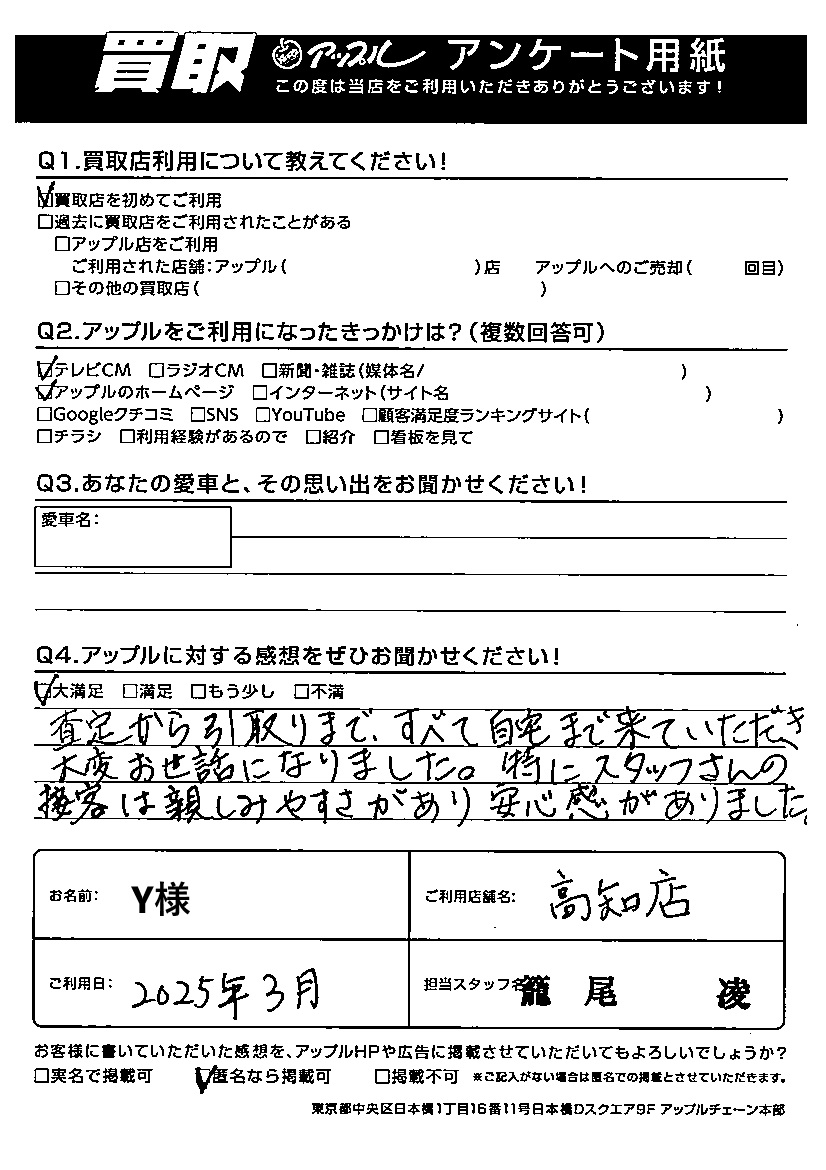 買取 アップル アンケート用紙
この度は当店をご利用いただきありがとうございます!
Q1.買取店利用について教えてください!
☑買取店を初めてご利用
□過去に買取店をご利用されたことがある
□アップル店をご利用
ご利用された店舗:アップル( )店 アップルへのご売却( 回目)
□その他の買取店( )
Q2.アップルをご利用になったきっかけは?(複数回答可)
☑テレビCM □ラジオCM □新聞・雑誌(媒体名/ )
☑アップルのホームページ □インターネット(サイト名 )
□Googleクチコミ □SNS □YouTube □顧客満足度ランキングサイト( )
□チラシ □利用経験があるので □紹介 □看板を見て
Q3.あなたの愛車と、その思い出をお聞かせください!
愛車名:
Q4.アップルに対する感想をぜひお聞かせください!
☑大満足 □満足 □もう少し □不満
査定から引取りまで、すべて自宅まで来ていただき
大変お世話になりました。特にスタッフさんの
接客は親しみやすさがあり安心感がありました。
お名前: Y様 ご利用店舗名: 高知店
ご利用日: 2025年3月 担当スタッフ名 籠尾 凌
お客様に書いていただいた感想を、アップルHPや広告に掲載させていただいてもよろしいでしょうか?
□実名で掲載可 ☑匿名なら掲載可 □掲載不可 ※ご記入がない場合は匿名での掲載とさせていただきます。
東京都中央区日本橋1丁目16番11号日本橋Dスクエア9F アップルチェーン本部